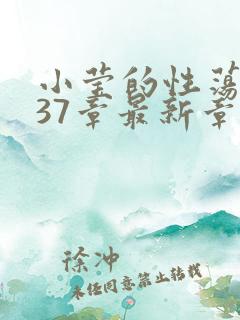 小莹的性荡
37章最新章
徐冲
未经同意禁止转载